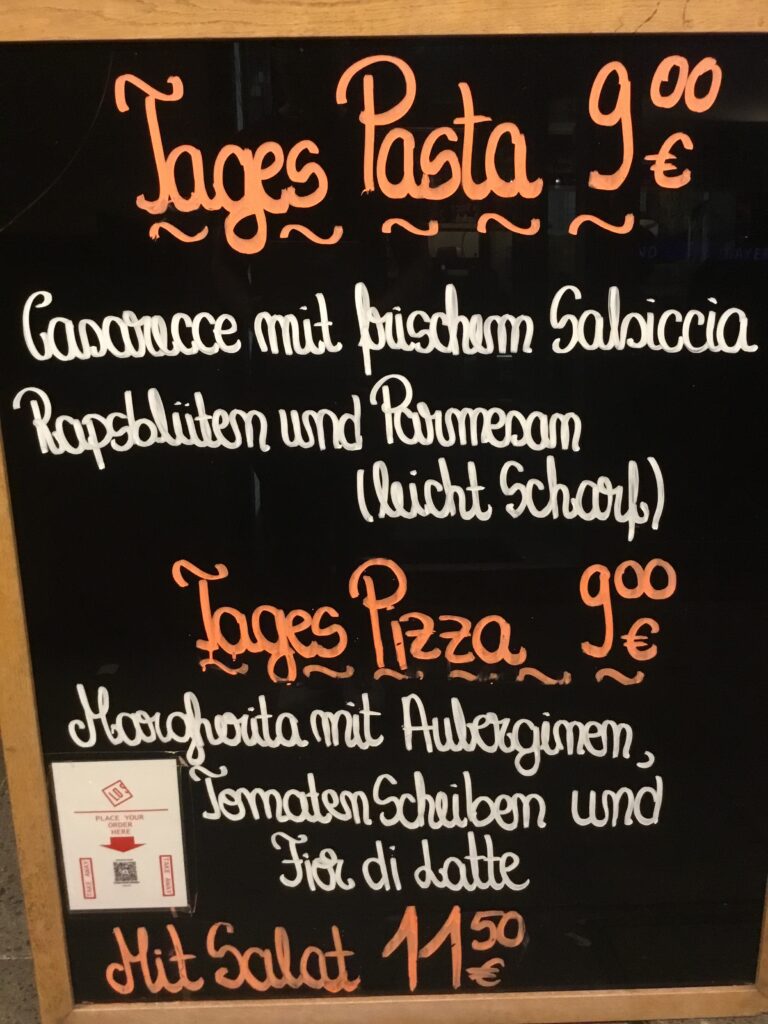 Tages Pasta 9⁰⁰ €
Casarecce mit frischem Salsiccia
Rapsblüten und Parmesan
(leicht Scharf)
Tages Pizza 9⁰⁰ €
Margherita mit Auberginen,
Tomaten Scheiben und
Fior di Latte
PLACE YOUR
ORDER
HERE
TAKE AWAY
TAKE AWAY
Mit Salat 11⁵⁰ €